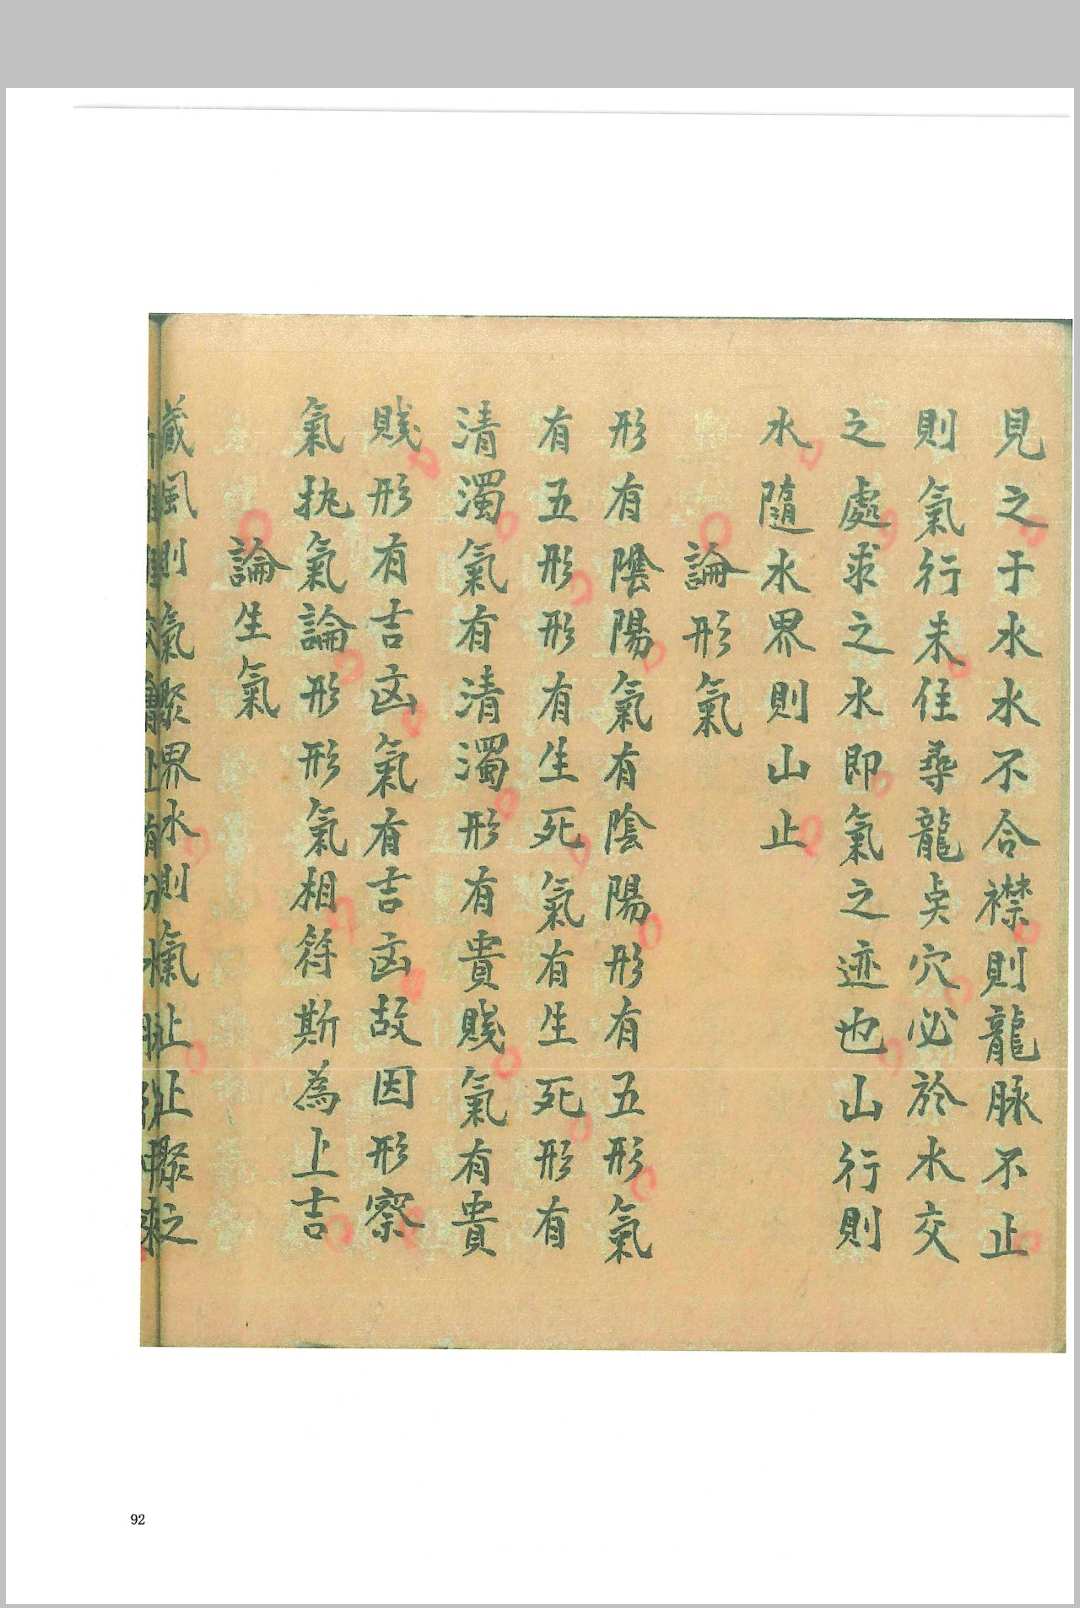 見之于水水不合襟則龍脉不止
則氣行未住尋龍点穴必於水交
之處求之水即氣之迹也山行則
水隨水界則山止
論形氣
形有陰陽氣有陰陽形有五形氣
有五形形有生死氣有生死形有
清濁氣有清濁形有貴賎氣有貴
賎形有吉凶氣有吉凶故因形察
氣执氣論形形氣相符斯為上吉
論生氣
藏風則氣聚界水則氣止止聚之
92